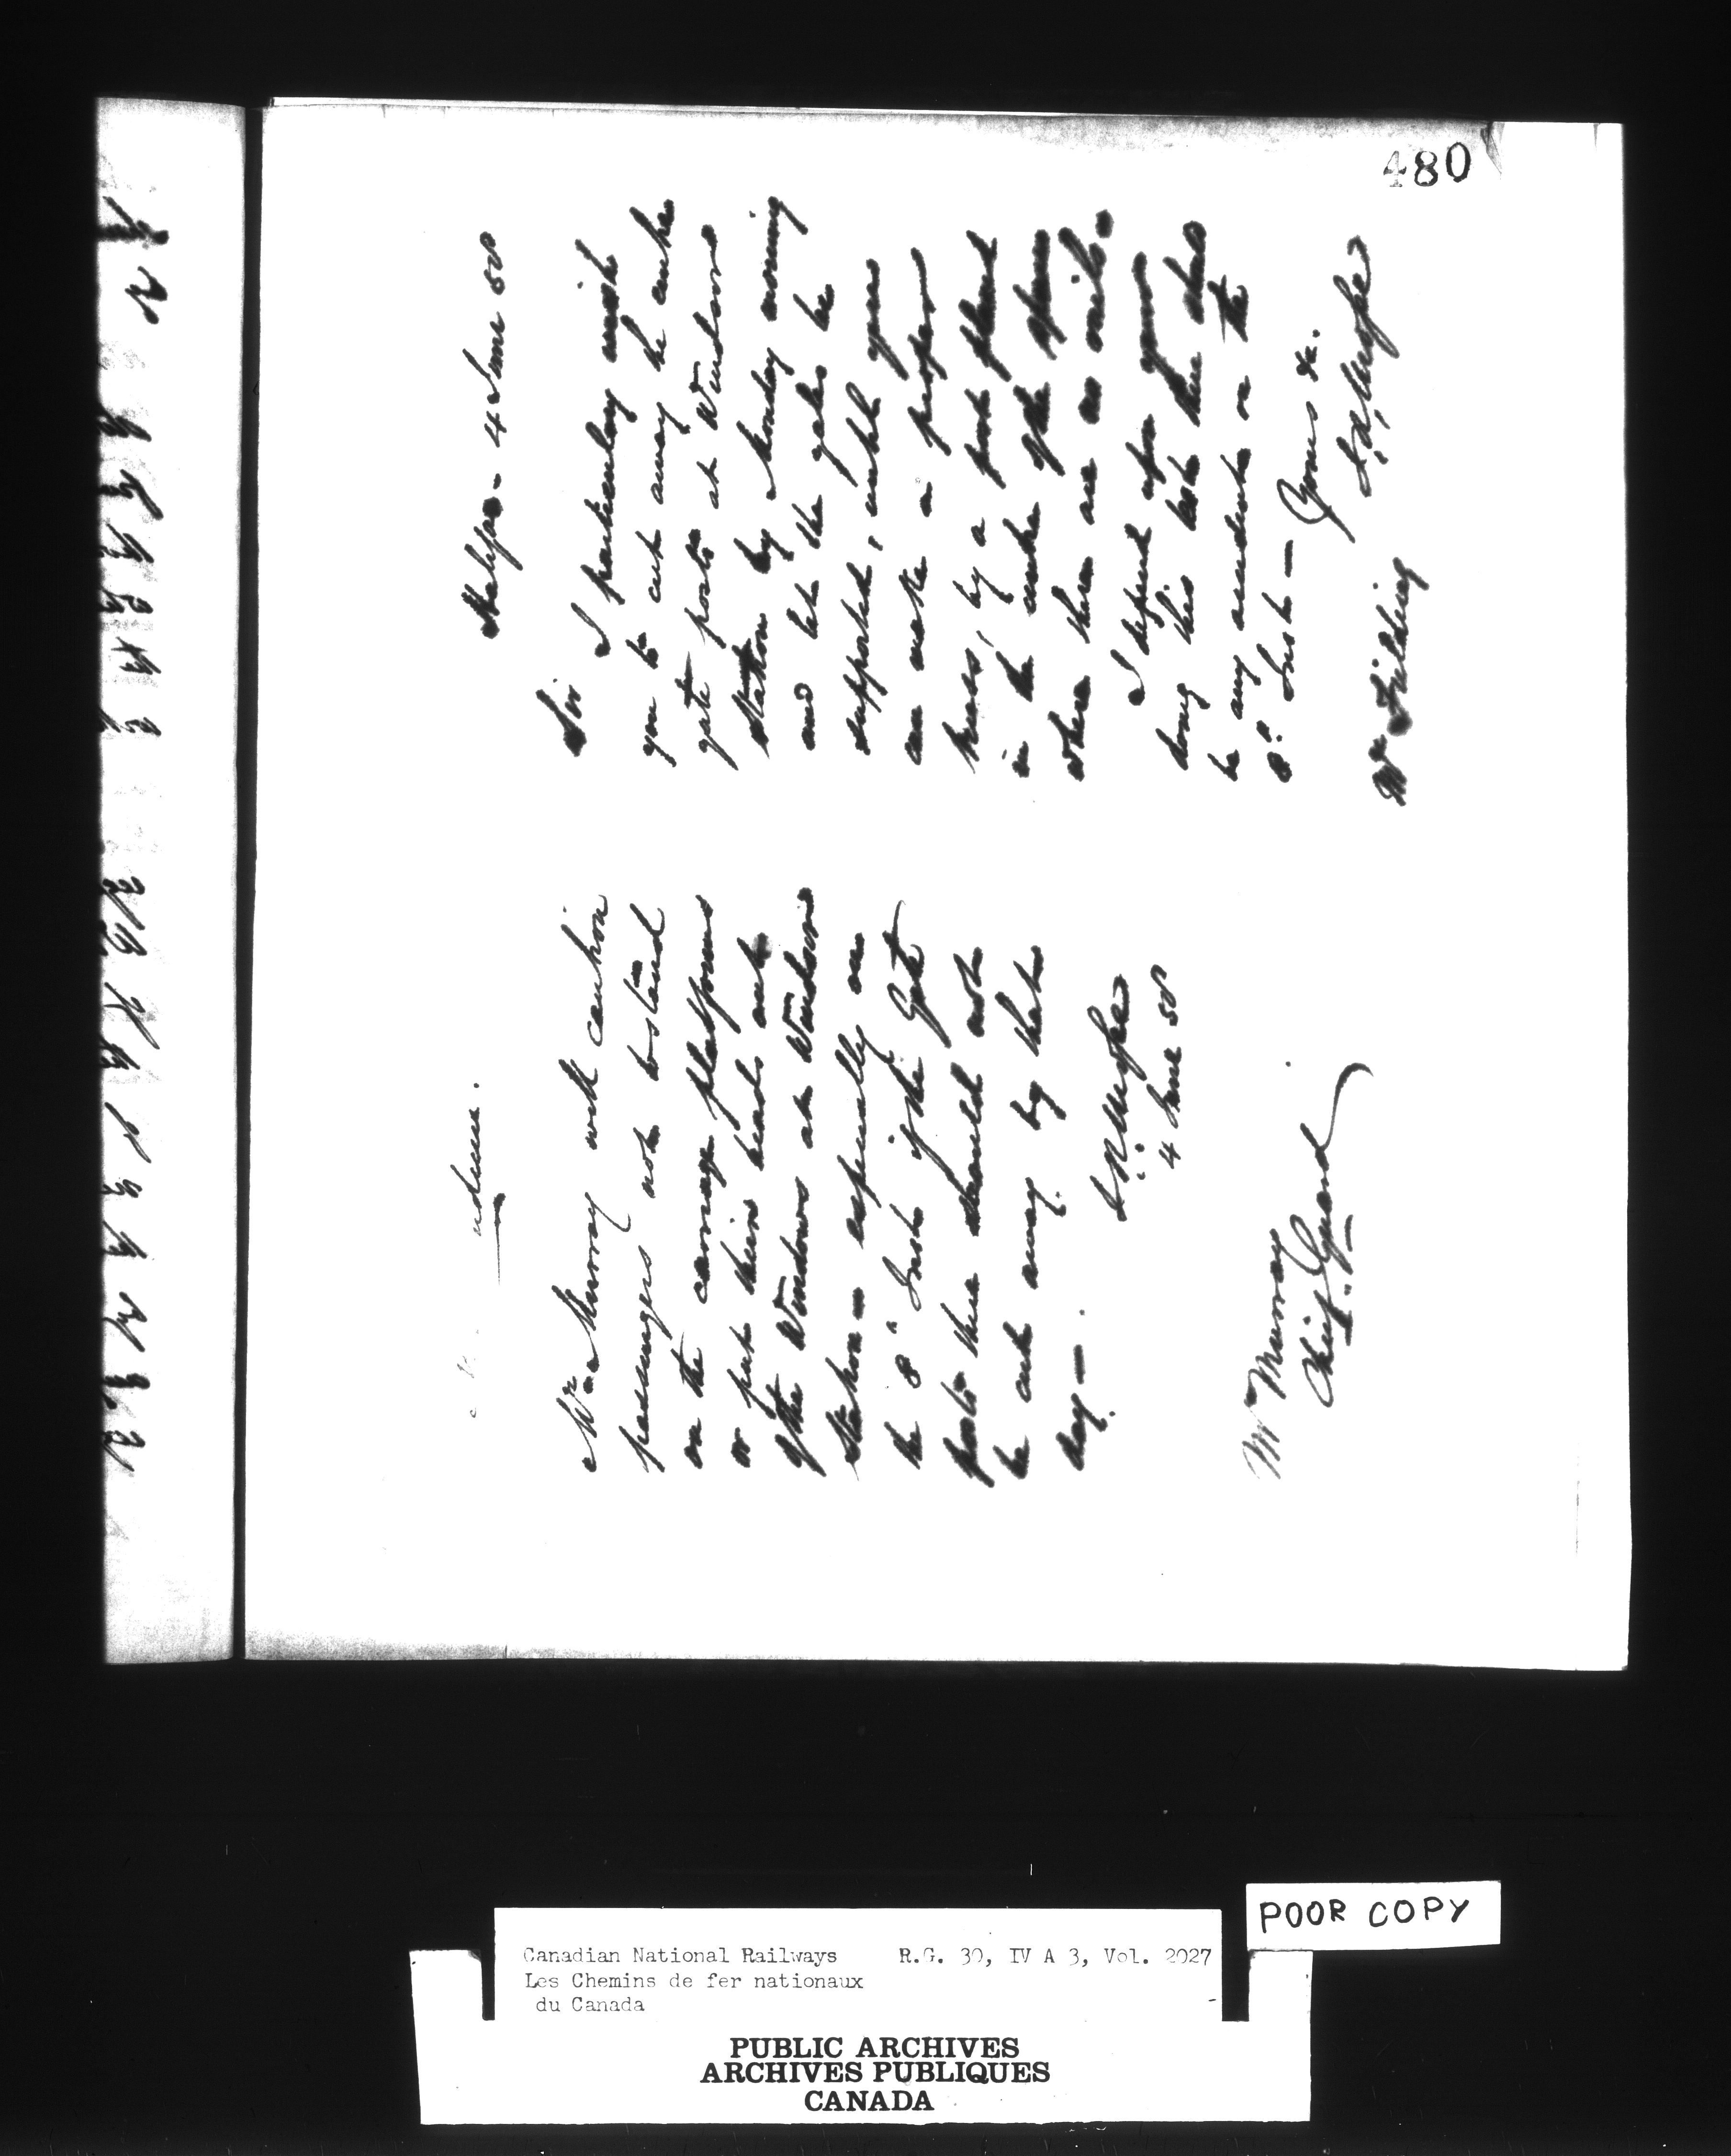 480
Mr Murray will caution
passengers not to stand
on the carriage platforms
or put their heads out
of the Windows at Windsor
Station - especially on
the 8th Inst if the Gate
posts there should not
be cut away by that
day -
4 June 58
Mr Murray
Chief Guard
Halifax - 4 June 58
Sir
I particularly wish
you to cut away the centre
gate posts at Windsor
Station by Monday evening
and let the gates be
supported, until you
can make a proper
truss, by a post placed
in the centre of the space
where there are no rails.
I depend upon your
doing this lest there should
be any accidents on the
8th Inst - Yours &c.
Mr Fielding
POOR COPY
Canadian National Railways R.G. 30, IV A 3, Vol. 2027
Les Chemins de fer nationaux
du Canada
PUBLIC ARCHIVES
ARCHIVES PUBLIQUES
CANADA